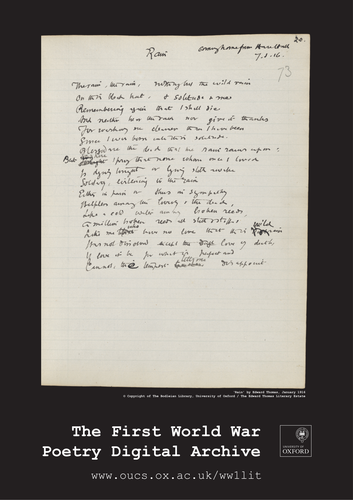 20.
Rain
coming home from Hare Hall
7.1.16.
73
The rain, the rain, nothing but the wild rain
On this bleak hut, & solitude & me
Remembering again that I shall die
And neither hear the rain nor give it thanks
For washing me cleaner than I have been
Since I was born into this solitude.
Blessed are the dead that the rain rains upon:
But I pray that none whom once I loved
Is dying tonight or lying still awake
Solitary, listening to the rain
Either in pain or thus in sympathy
Helpless among the living & the dead,
Like a cold water among broken reeds
broken reeds all still & stiff,
wild
Like me who have no love that this rain
Has not dissolved except the love of death,
If love it be for what is perfect and
tells me
Cannot, the tempest disappoint
'Rain' by Edward Thomas, January 1916
© Copyright of The Bodleian Library, University of Oxford / The Edward Thomas Literary Estate
The First World War
Poetry Digital Archive
UNIVERSITY OF
OXFORD
www.oucs.ox.ac.uk/ww1lit